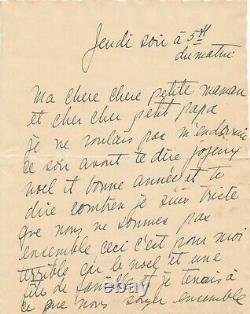 Jeudi soir à 5 H
du matin
Ma chere chere petite maman
et cher cher petit papa
je ne voulais pas m'endormir
ce soir avant te dire joyeux
noel et bonne année et te
dire combien je suis triste
que nous ne sommes pas
ensemble ceci c'est pour moi
terrible car le noel et une
fête de famille et je tenais à
ce que nous soyer ensemble